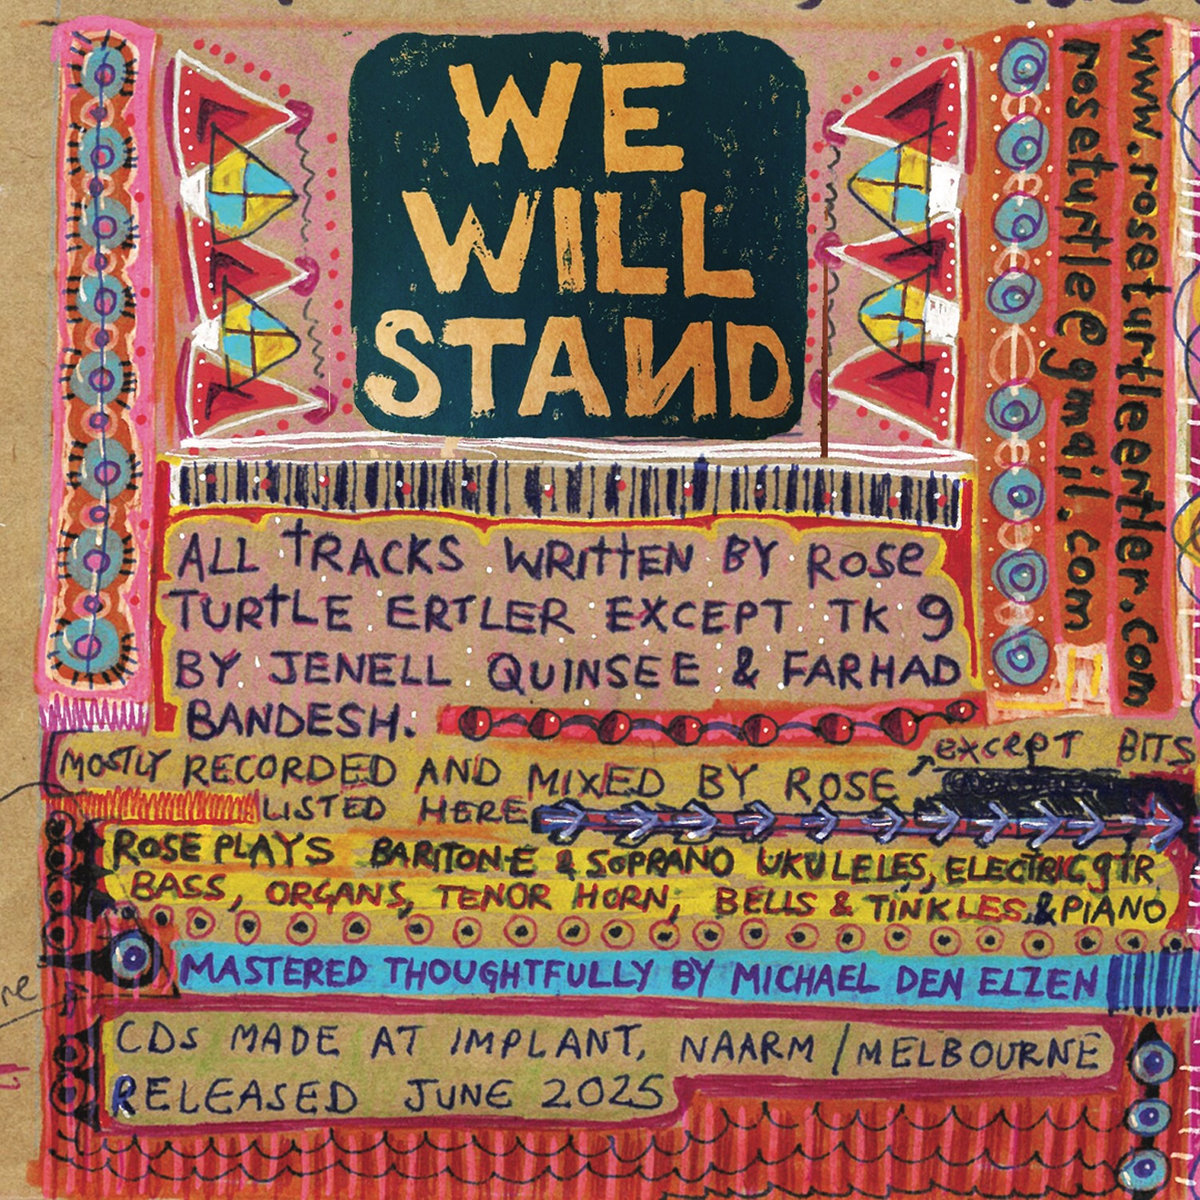 WE
WILL
STAND
ALL TRACKS WRITTEN BY ROSE
TURTLE ERTLER EXCEPT TK 9
BY JENELL QUINSEE & FARHAD
BANDESH.
MOSTLY RECORDED AND MIXED BY ROSE except BITS
LISTED HERE
ROSE PLAYS BARITONE & SOPRANO UKULELES, ELECTRIC gTR
BASS, ORGANS, TENOR HORN, BELLS & TINKLES, & PIANO
MASTERED THOUGHTFULLY BY MICHAEL DEN ELZEN
CDs MADE AT IMPLANT, NAARM / MELBOURNE
RELEASED JUNE 2025
www.roseturtleertler.com
roseturtle@gmail.com